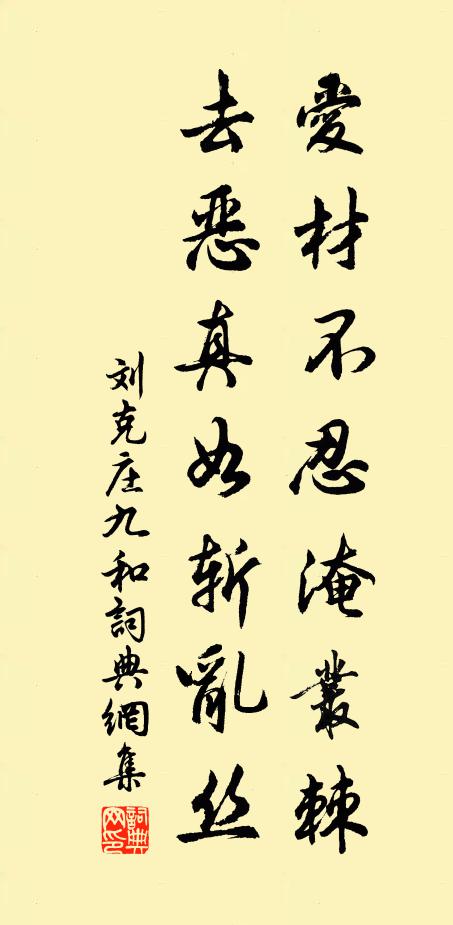 愛材不忍淹叢棘
去惡真如斬亂丝
刘克庄九和詞典網集
詞典網印